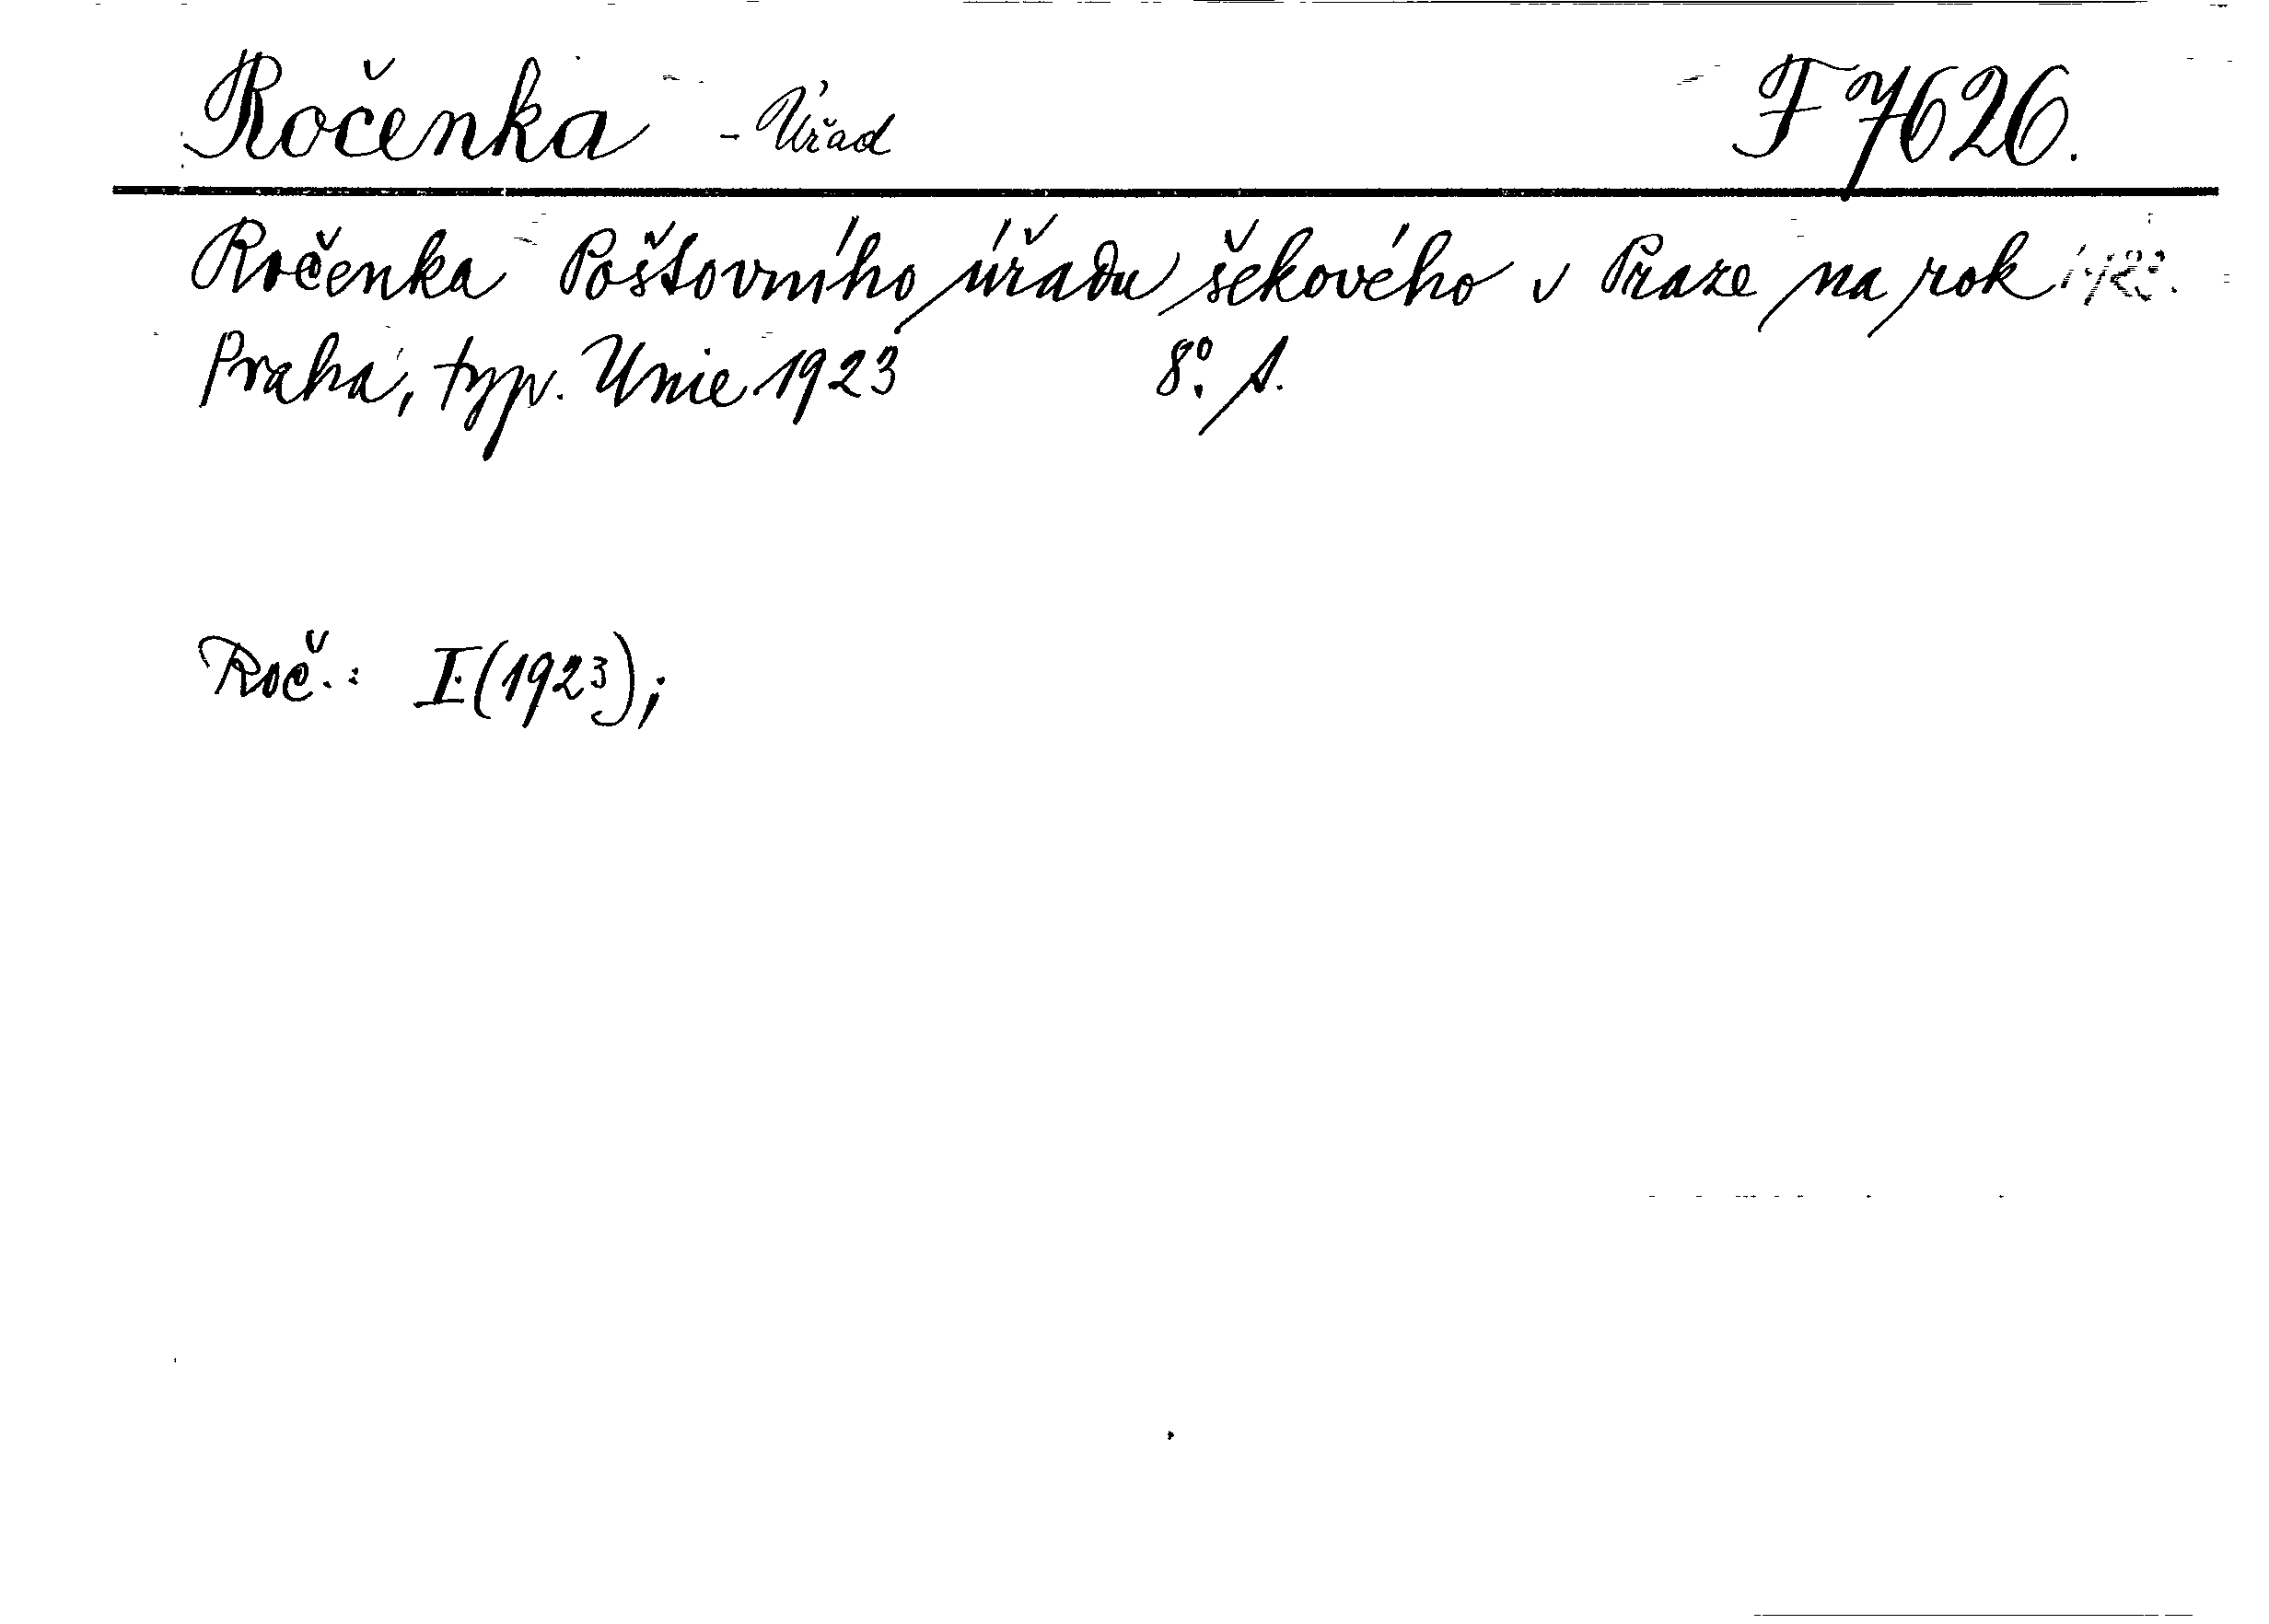 Ročenka - Úřad F 7626.
Ročenka Poštovního úřadu šekového v Praze na rok
Praha, typ. Unie 1923 8°. s.
Roč.: I.(1923);